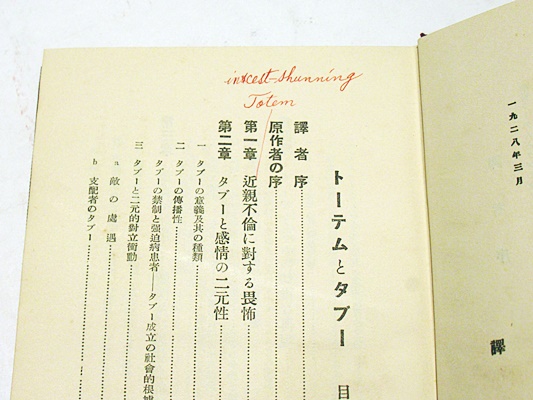 一九二八年三月
譯
incest-shunning
Totem
トーテムとタブー 目
譯者序
原作者の序
第一章 近親不倫に對する畏怖
第二章 タブーと感情の二元性
一 タブーの意義及其の種類
二 タブーの傳播性
タブーの禁制と强迫病患者——タブー成立の社會的根據
三 タブーと二元的對立衝動
a 敵の處遇
b 支配者のタブー